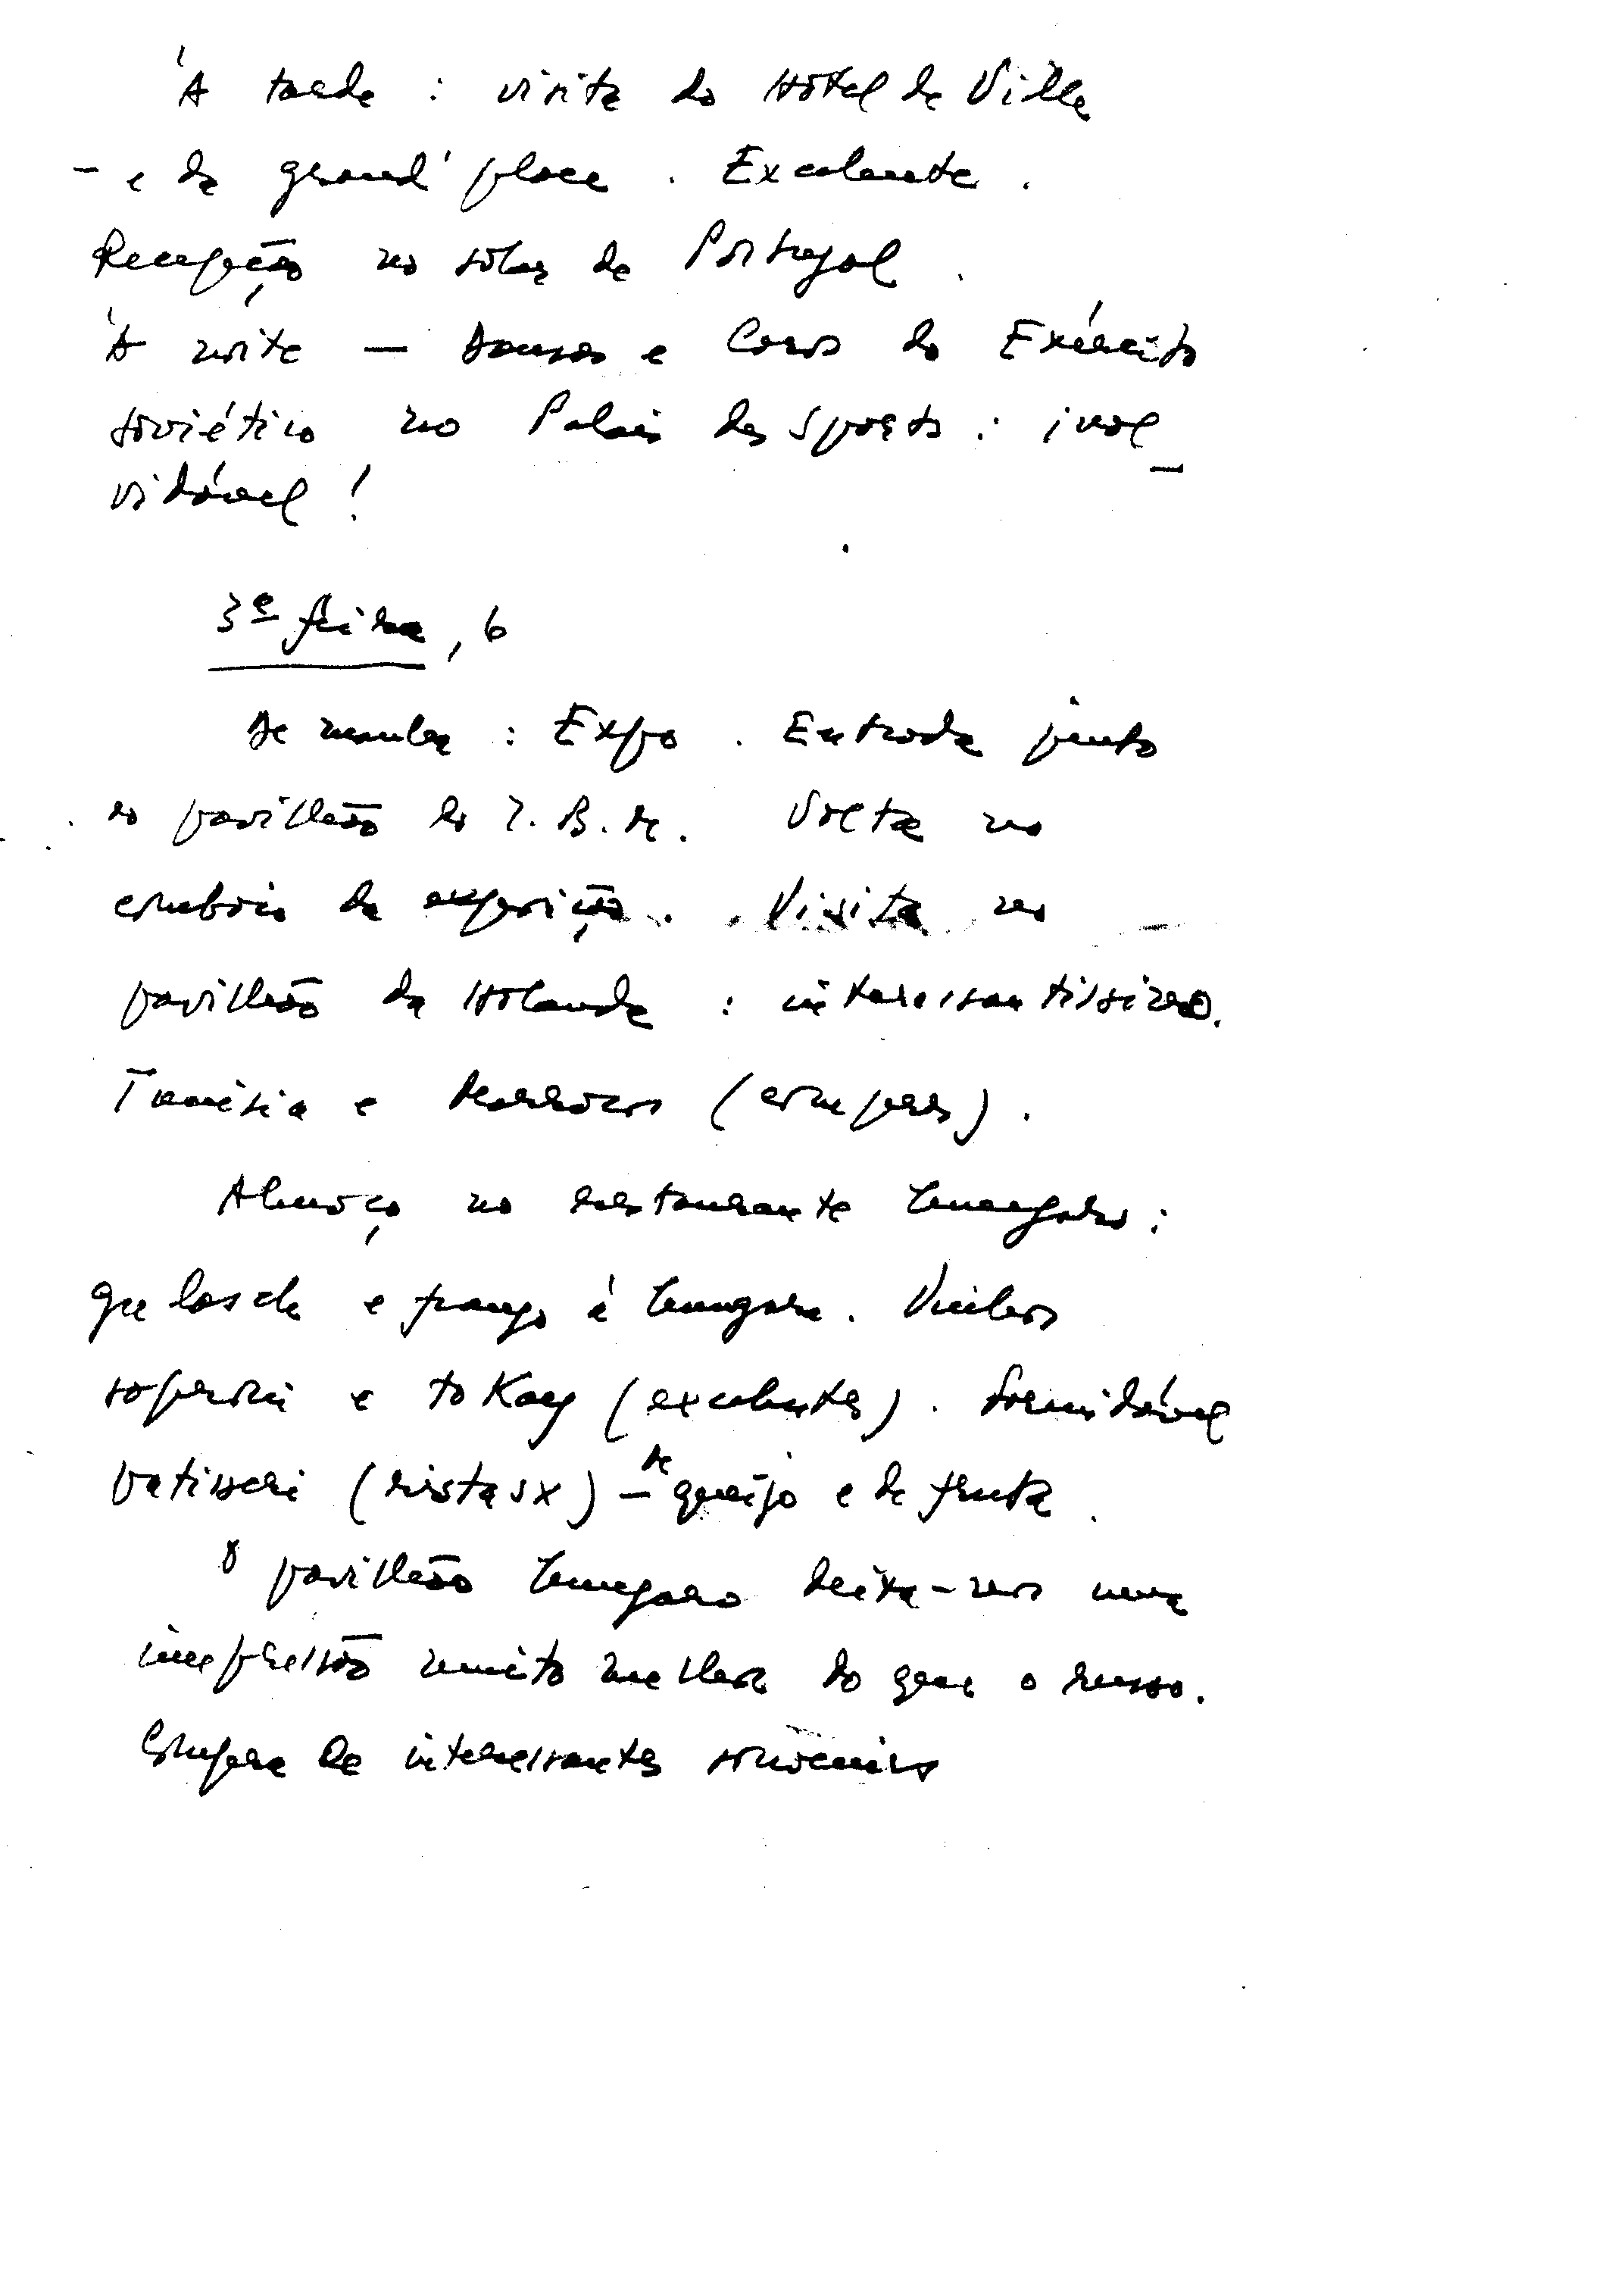 À tarde : visita do Hôtel de Ville
- e da grand' place . Excelente .
Recepção no solar de Portugal .
À noite — Danças e Coros do Exército
soviético no Palais des Sports : inol_
vidável !
3ª feira, 6
De manhã : Expo . Entrada junto
do pavilhão do I. B. M. Volta no
comboio da exposição . Visita no
pavilhão da Holanda : interessantíssimo.
Tunísia e Marrocos (compras) .
Almoço no restaurante húngaro :
gulasch e frango à húngara . Vinhos
e tokay (excelentes) . Formidável
patisseri ( ) — de queijo e de fruta .
O pavilhão húngaro deixa-nos uma
impressão muito melhor do que o russo.
Compra de interessantes souvenirs